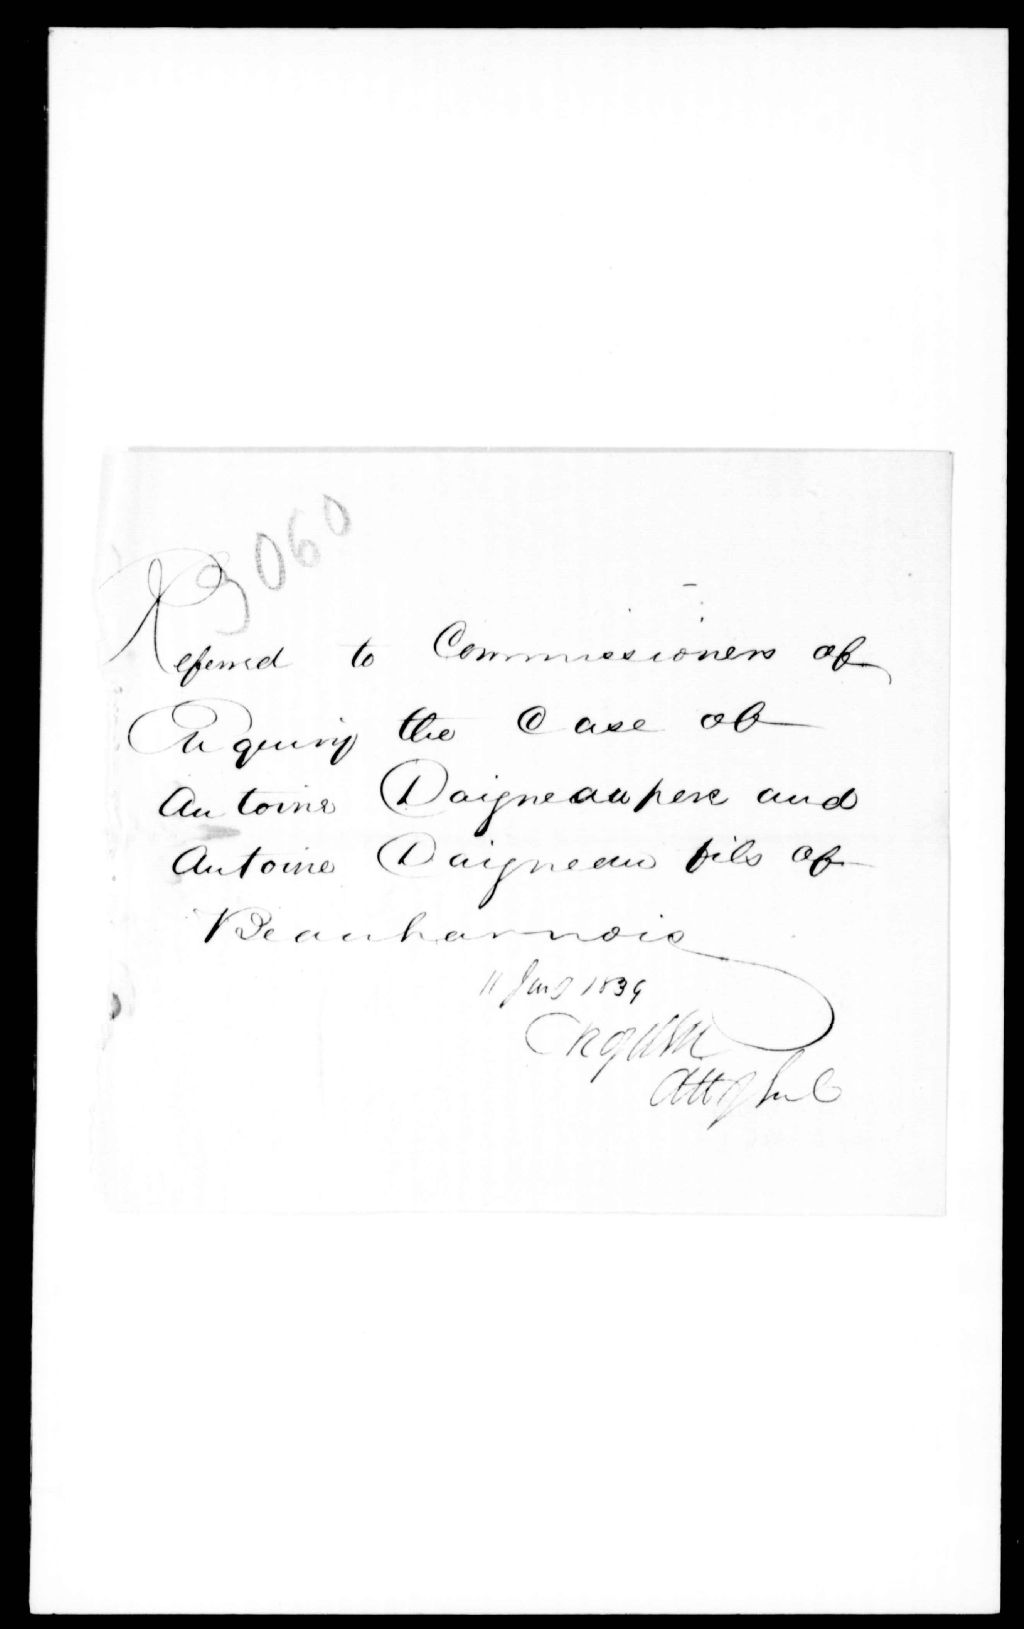 3060
Referred to Commissioners of
Enquiry the Case of
Antoine Daigneau pere and
Antoine Daigneau fils of
Beauharnois
11 Jany 1839
Atty Genl